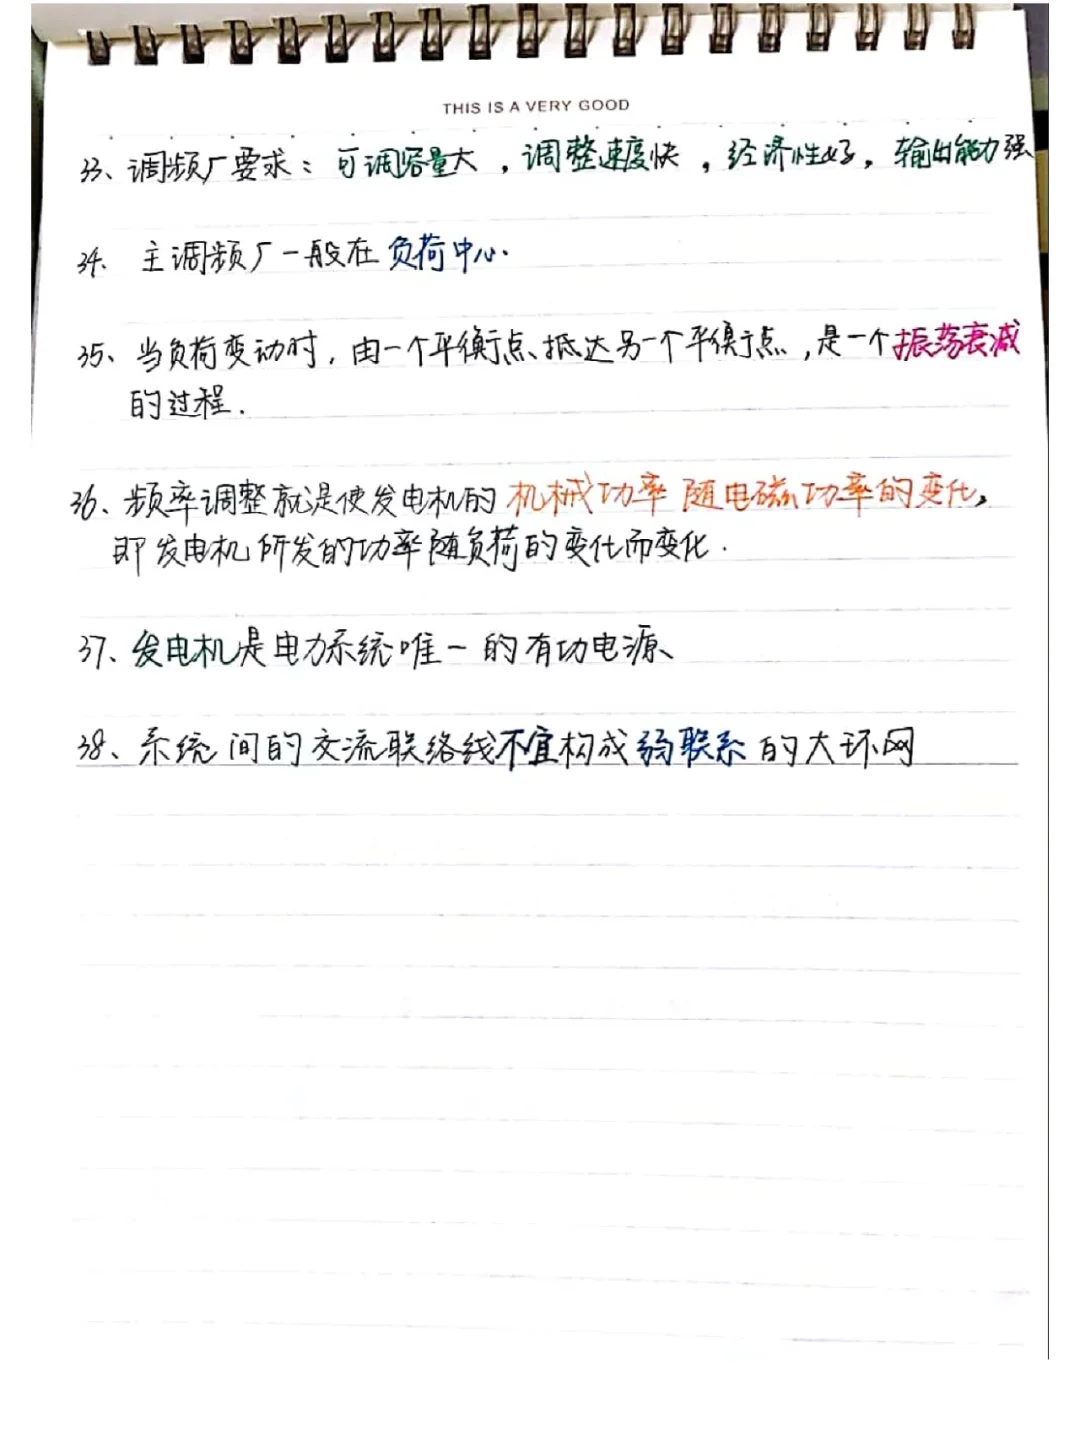 THIS IS A VERY GOOD
33、调频厂要求：可调容量大，调整速度快，经济性好，输出能力强
34. 主调频厂一般在负荷中心.
35、当负荷变动时，由一个平衡点、抵达另一个平衡点，是一个振荡衰减
的过程.
36、频率调整就是使发电机的机械功率随电磁功率的变化，
即发电机所发的功率随负荷的变化而变化.
37、发电机是电力系统唯一的有功电源、
38、系统间的交流联络线不宜构成弱联系的大环网